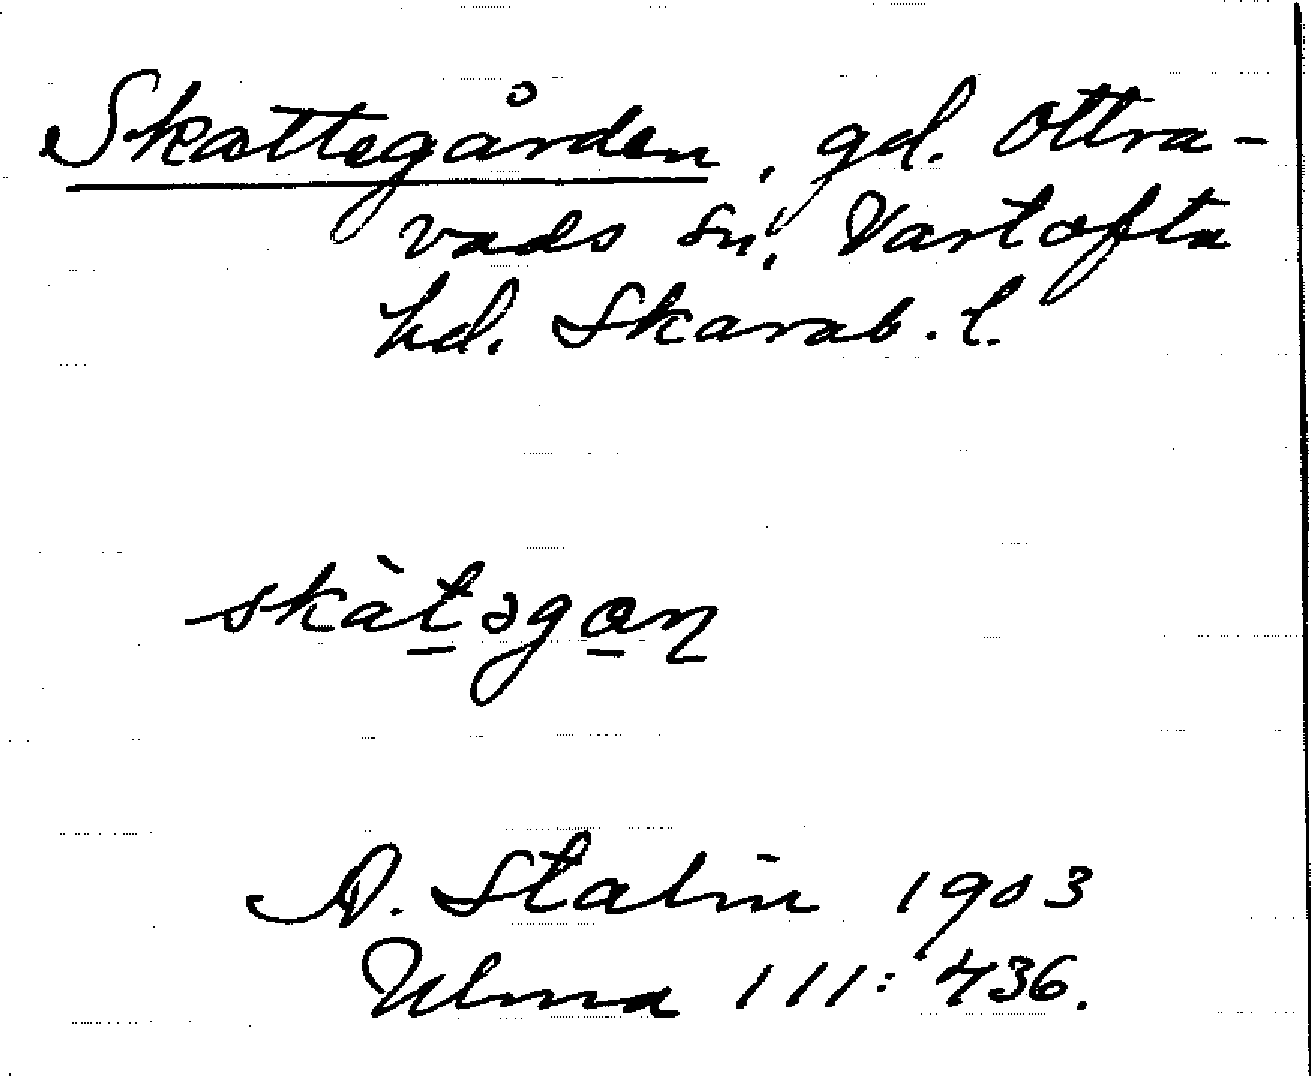 Skattegården, gd. Ottra-
vads sn, Vartofta
hd. Skarab. l.
skàt̲əga̲ɳ
A. Stalin 1903
Ulma 111:436.